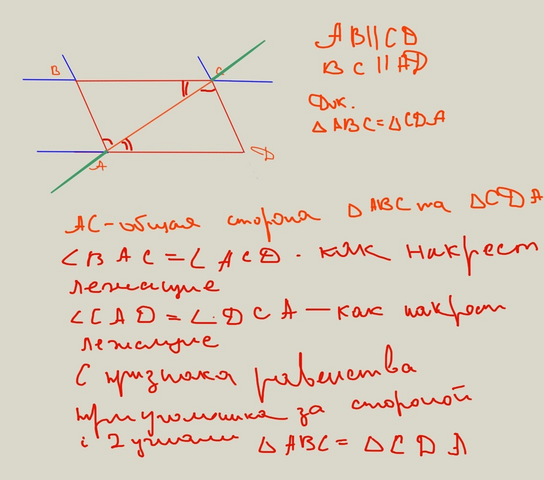 B
C
A
D
AB||CD
BC||AD
Док.
△ABC=△CDA
AC-общая сторона △ABC та △CDA
∠BAC=∠ACD. как накрест
лежащие
∠CAD=∠.DCA — как накрест
лежащие
С признака равенства
треугольника за стороной
і 2 углами △ABC=△CDA